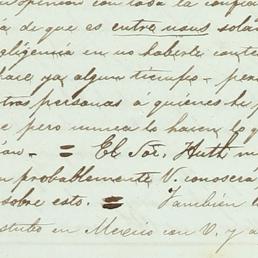 con toda la confian
a de que es entre usus solam
egligencia en no haberle contes
hace ya algun tiempo - pero
tras personas á quienes he p
e pero nunca lo hacen lo qu
= El Sor. Huth, m
n probablemente V. conocerá
sobre esto. = Tambien l
estubo en Mexico con V. y a